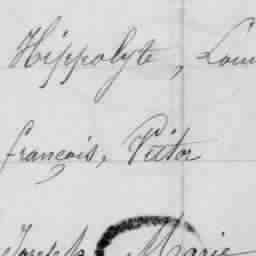 Hippolyte, Loui
françois, Victor
Joseph Marie